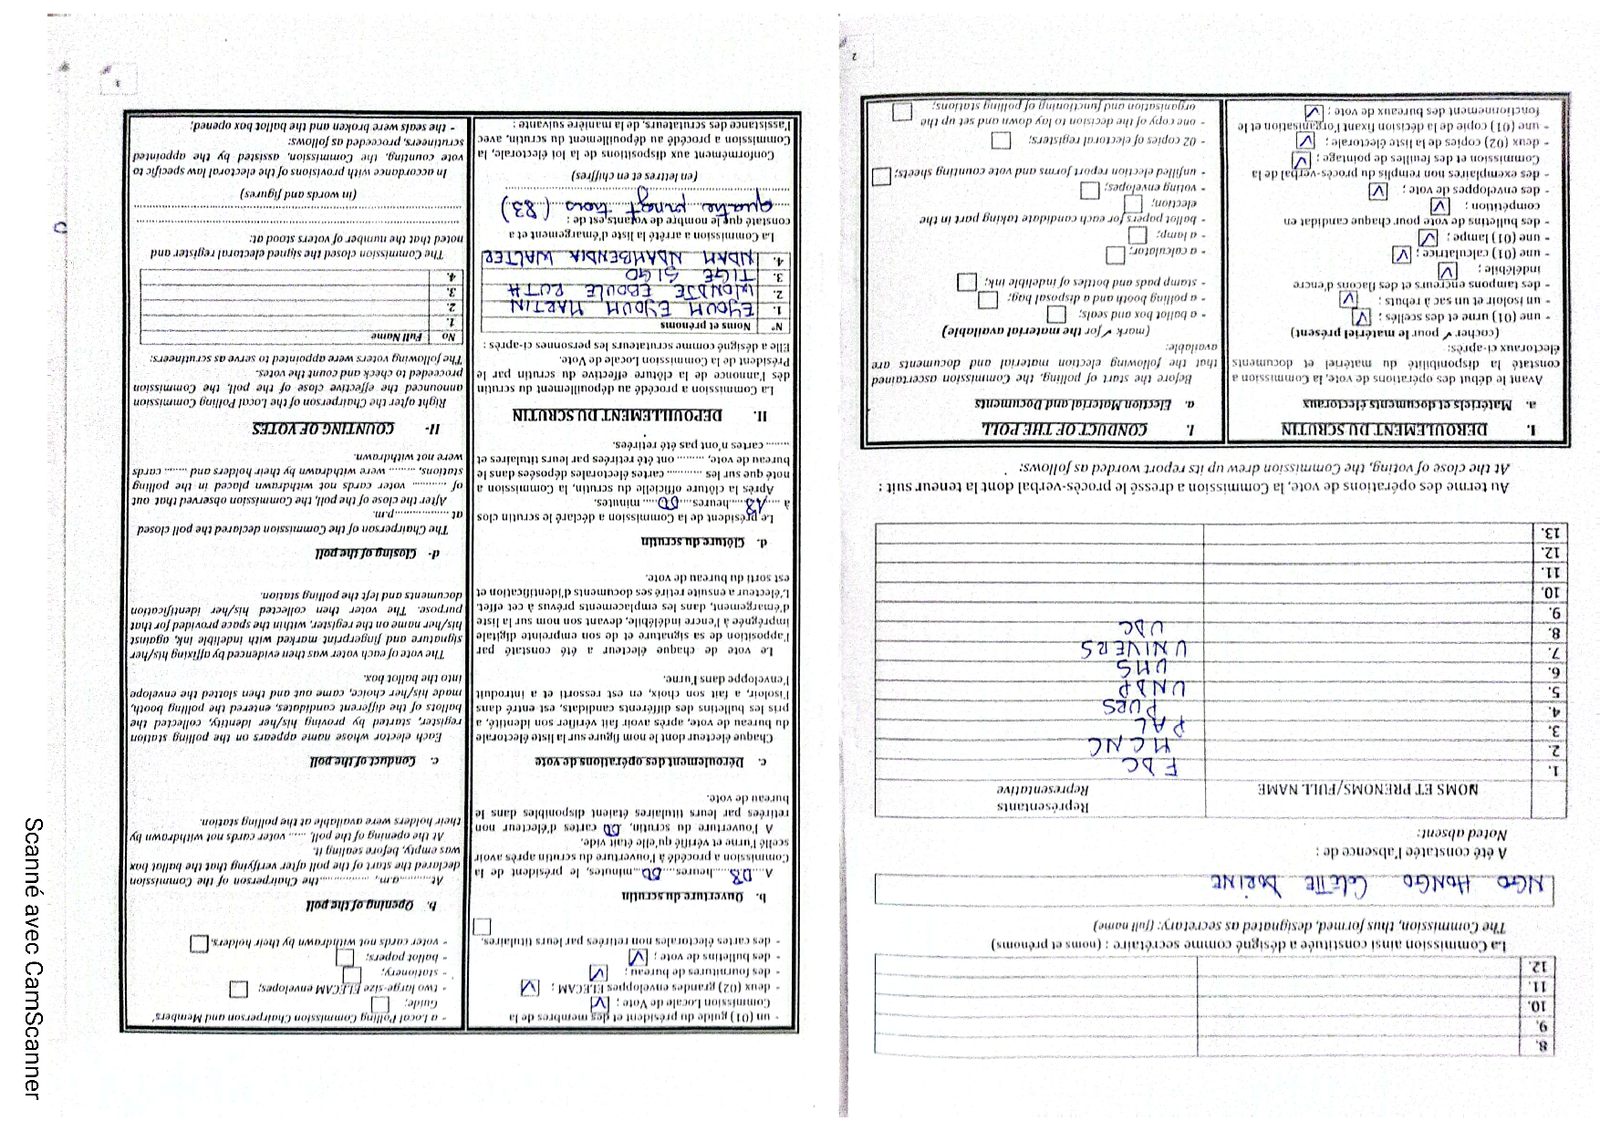 8.
9.
10.
11.
12.
La Commission ainsi constituée a désigné comme secrétaire : (noms et prénoms)
The Commission, thus formed, designated as secretary: (full name)
NGO HONGO COLETTE DORINE
A été constatée l'absence de :
Noted absent:
NOMS ET PRENOMS/FULL NAME
Représentants
Representative
1. FDC
2. MCNC
3. PAL
4. PURS
5. UNDP
6. UMS
7. UNIVERS
8. UDC
9.
10.
11.
12.
13.
Au terme des opérations de vote, la Commission a dressé le procès-verbal dont la teneur suit :
At the close of voting, the Commission drew up its report worded as follows:
I. DEROULEMENT DU SCRUTIN
a. Matériels et documents électoraux
Avant le début des opérations de vote, la Commission a
constaté la disponibilité du matériel et documents
électoraux ci-après:
(cocher ✓ pour le matériel présent)
- une (01) urne et des scellés ; ✓
- un isoloir et un sac à rebuts ; ✓
- des tampons encreurs et des flacons d'encre
indélébile ; ✓
- une (01) calculatrice ; ✓
- une (01) lampe ; ✓
- des bulletins de vote pour chaque candidat en
compétition ; ✓
- des enveloppes de vote ; ✓
- des exemplaires non remplis du procès-verbal de la
Commission et des feuilles de pointage ; ✓
- deux (02) copies de la liste électorale ; ✓
- une (01) copie de la décision fixant l'organisation et le
fonctionnement des bureaux de vote ; ✓
I. CONDUCT OF THE POLL
a. Election Material and Documents
Before the start of polling, the Commission ascertained
that the following election material and documents are
available:
(mark ✓ for the material available)
- a ballot box and seals;
- a polling booth and a disposal bag;
- stamp pads and bottles of indelible ink;
- a calculator;
- a lamp;
- ballot papers for each candidate taking part in the
election;
- voting envelopes;
- unfilled election report forms and vote counting sheets;
- 02 copies of electoral registers;
- one copy of the decision to lay down and set up the
organisation and functioning of polling stations;
2
- un (01) guide du président et des membres de la
Commission Locale de Vote ; ✓
- deux (02) grandes enveloppes ELECAM ; ✓
- des fournitures de bureau ; ✓
- des bulletins de vote ; ✓
- des cartes électorales non retirées par leurs titulaires.
b. Ouverture du scrutin
A 08 heures 00 minutes, le président de la
Commission a procédé à l'ouverture du scrutin après avoir
scellé l'urne et vérifié qu'elle était vide.
A l'ouverture du scrutin, 00 cartes d'électeur non
retirées par leurs titulaires étaient disponibles dans le
bureau de vote.
c. Déroulement des opérations de vote
Chaque électeur dont le nom figure sur la liste électorale
du bureau de vote, après avoir fait vérifier son identité, a
pris les bulletins des différents candidats, est entré dans
l'isoloir, a fait son choix, en est ressorti et a introduit
l'enveloppe dans l'urne.
Le vote de chaque électeur a été constaté par
l'apposition de sa signature et de son empreinte digitale
imprégnée à l'encre indélébile, devant son nom sur la liste
d'émargement, dans les emplacements prévus à cet effet.
L'électeur a ensuite retiré ses documents d'identification et
est sorti du bureau de vote.
d. Clôture du scrutin
Le président de la Commission a déclaré le scrutin clos
à 18 heures 00 minutes.
Après la clôture officielle du scrutin, la Commission a
noté que sur les ......... cartes électorales déposées dans le
bureau de vote, ......... ont été retirées par leurs titulaires et
......... cartes n'ont pas été retirées.
II. DEPOUILLEMENT DU SCRUTIN
La Commission a procédé au dépouillement du scrutin
dès l'annonce de la clôture effective du scrutin par le
Président de la Commission Locale de Vote.
Elle a désigné comme scrutateurs les personnes ci-après :
N° Noms et prénoms
1. EYOUM EYOUM MARTIN
2. WONDJE EBOULE RUTH
3. TIGE SIGO
4. NDAM NDAMBENDIA WALTER
La Commission a arrêté la liste d'émargement et a
constaté que le nombre de votants est de :
quatre vingt trois (83)
(en lettres et en chiffres)
Conformément aux dispositions de la loi électorale, la
Commission a procédé au dépouillement du scrutin, avec
l'assistance des scrutateurs, de la manière suivante :
- a Local Polling Commission Chairperson and Members'
Guide;
- two large-size ELECAM envelopes;
- stationery;
- ballot papers;
- voter cards not withdrawn by their holders.
b. Opening of the poll
At.........a.m, ............the Chairperson of the Commission
declared the start of the poll after verifying that the ballot box
was empty, before sealing it.
At the opening of the poll, ...... voter cards not withdrawn by
their holders were available at the polling station.
c. Conduct of the poll
Each elector whose name appears on the polling station
register, started by proving his/her identity, collected the
ballots of the different candidates, entered the polling booth,
made his/her choice, came out and then slotted the envelope
into the ballot box.
The vote of each voter was then evidenced by affixing his/her
signature and fingerprint marked with indelible ink, against
his/her name on the register, within the space provided for that
purpose. The voter then collected his/her identification
documents and left the polling station.
d- Closing of the poll
The Chairperson of the Commission declared the poll closed
at ...............p.m.
After the close of the poll, the Commission observed that out
of ......... voter cards not withdrawn placed in the polling
stations, ......... were withdrawn by their holders and ...... cards
were not withdrawn.
II- COUNTING OF VOTES
Right after the Chairperson of the Local Polling Commission
announced the effective close of the poll, the Commission
proceeded to check and count the votes.
The following voters were appointed to serve as scrutineers:
No Full Name
1.
2.
3.
4.
The Commission closed the signed electoral register and
noted that the number of voters stood at:
(in words and figures)
In accordance with provisions of the electoral law specific to
vote counting, the Commission, assisted by the appointed
scrutineers, proceeded as follows:
- the seals were broken and the ballot box opened;
3
Scanné avec CamScanner